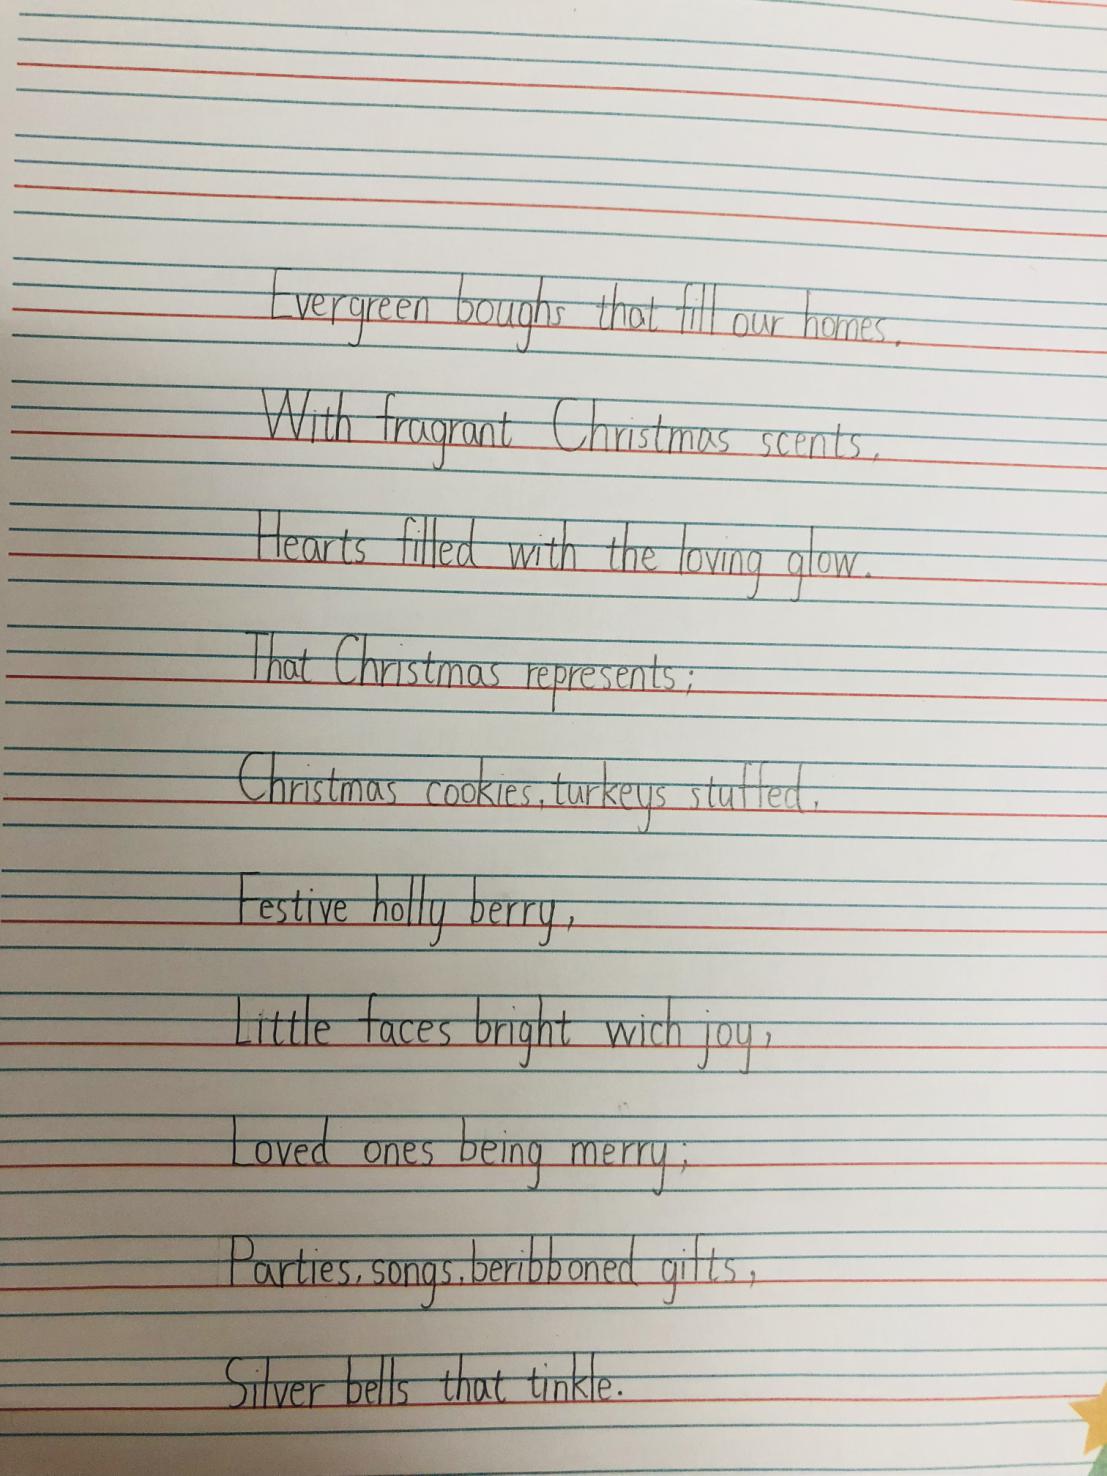 Evergreen boughs that fill our homes,
With fragrant Christmas scents,
Hearts filled with the loving glow.
That Christmas represents;
Christmas cookies, turkeys stuffed,
Festive holly berry,
Little faces bright wich joy,
Loved ones being merry;
Parties, songs, beribboned gifts,
Silver bells that tinkle.